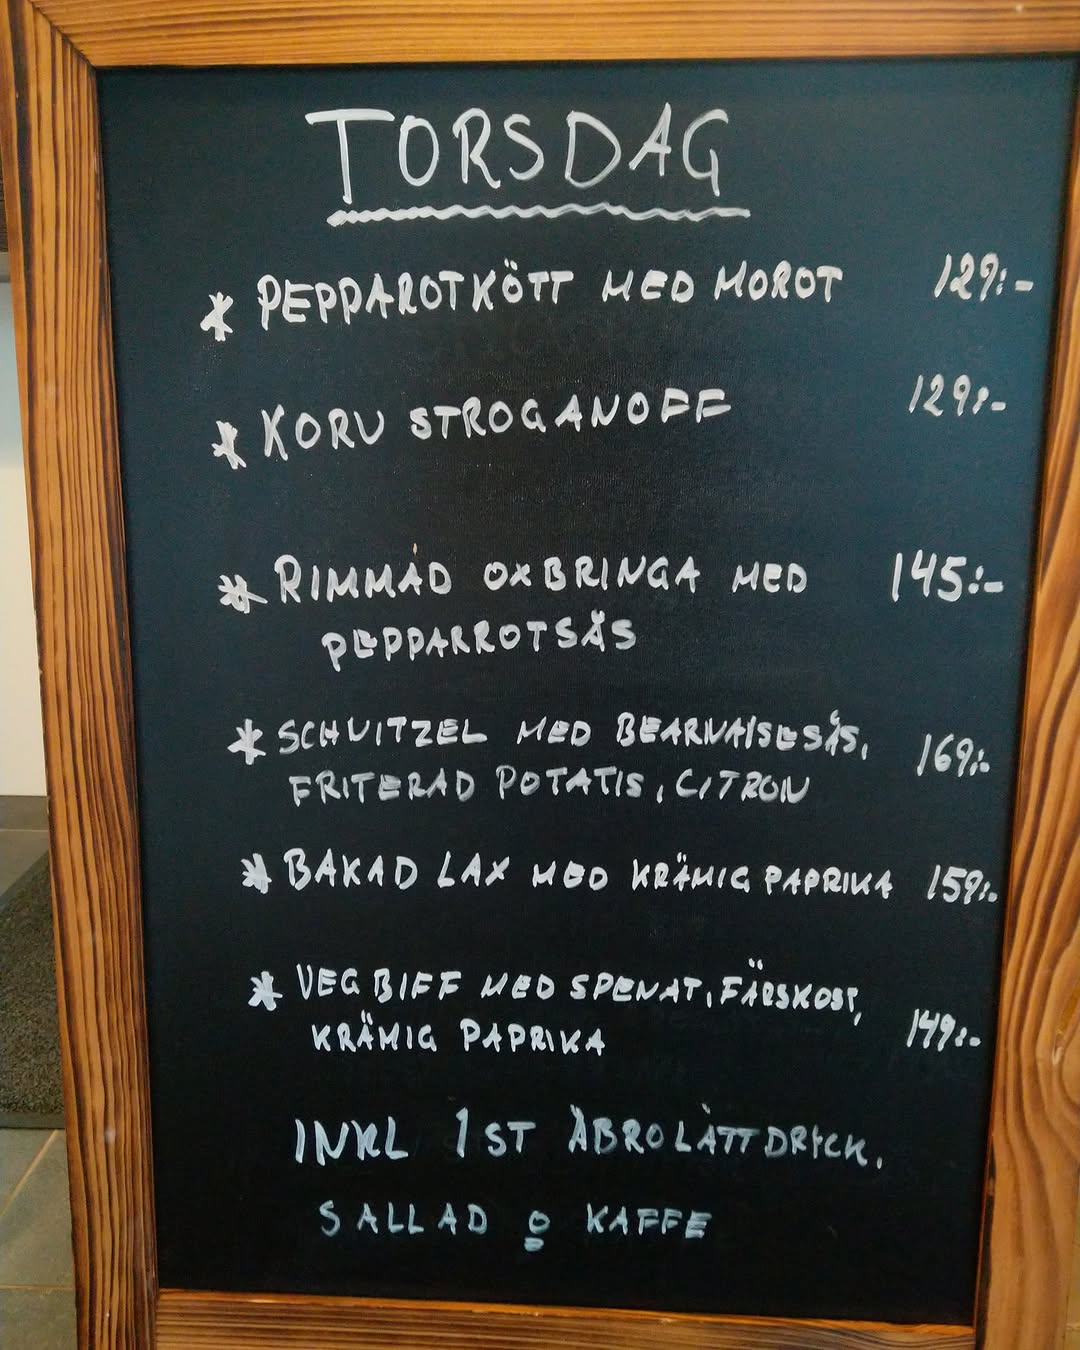 TORSDAG
* PEPPAROTKÖTT MED MOROT 129:-
* KORV STROGANOFF 129:-
* RIMMAD OXBRINGA MED 145:-
PEPPARROTSÅS
* SCHNITZEL MED BEARNAISESÅS, 169:-
FRITERAD POTATIS, CITRON
* BAKAD LAX MED KRÄMIG PAPRIKA 159:-
* VEG BIFF MED SPENAT, FÄRSKOST,
KRÄMIG PAPRIKA 149:-
INKL 1ST ÅBRO LÄTTDRICK,
SALLAD O KAFFE